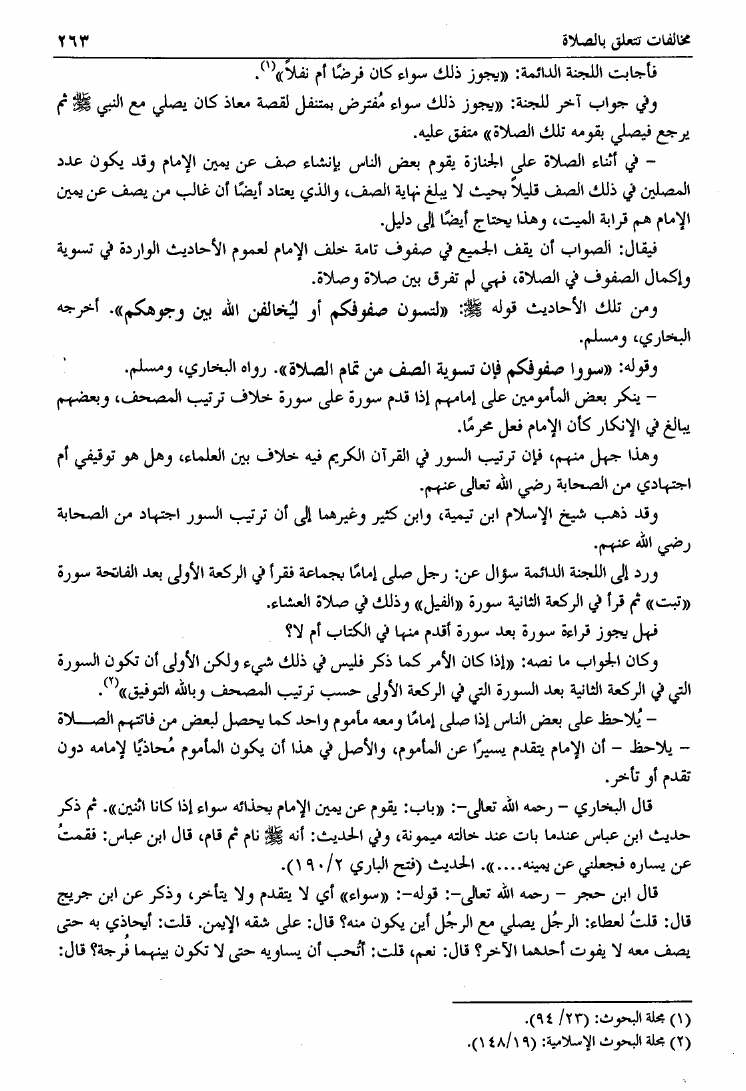 مخالفات تتعلق بالصلاة ٢٦٣
فأجابت اللجنة الدائمة: «يجوز ذلك سواء كان فرضًا أم نفلاً»(١).
وفي جواب آخر للجنة: «يجوز ذلك سواء مُفترض بمتنفل لقصة معاذ كان يصلي مع النبي ﷺ ثم
يرجع فيصلي بقومه تلك الصلاة» متفق عليه.
– في أثناء الصلاة على الجنازة يقوم بعض الناس بإنشاء صف عن يمين الإمام وقد يكون عدد
المصلين في ذلك الصف قليلاً بحيث لا يبلغ نهاية الصف، والذي يعتاد أيضًا أن غالب من يصف عن يمين
الإمام هم قرابة الميت، وهذا يحتاج أيضًا إلى دليل.
فيقال: الصواب أن يقف الجميع في صفوف تامة خلف الإمام لعموم الأحاديث الواردة في تسوية
وإكمال الصفوف في الصلاة، فهي لم تفرق بين صلاة وصلاة.
ومن تلك الأحاديث قوله ﷺ: «لتسون صفوفكم أو ليُخالفن الله بين وجوهكم». أخرجه
البخاري، ومسلم.
وقوله: «سووا صفوفكم فإن تسوية الصف من تمام الصلاة». رواه البخاري، ومسلم.
– ينكر بعض المأمومين على إمامهم إذا قدم سورة على سورة خلاف ترتيب المصحف، وبعضهم
يبالغ في الإنكار كأن الإمام فعل محرمًا.
وهذا جهل منهم، فإن ترتيب السور في القرآن الكريم فيه خلاف بين العلماء، وهل هو توقيفي أم
اجتهادي من الصحابة رضي الله تعالى عنهم.
وقد ذهب شيخ الإسلام ابن تيمية، وابن كثير وغيرهما إلى أن ترتيب السور اجتهاد من الصحابة
رضي الله عنهم.
ورد إلى اللجنة الدائمة سؤال عن: رجل صلى إمامًا بجماعة فقرأ في الركعة الأولى بعد الفاتحة سورة
«تبت» ثم قرأ في الركعة الثانية سورة «الفيل» وذلك في صلاة العشاء.
فهل يجوز قراءة سورة بعد سورة أقدم منها في الكتاب أم لا؟
وكان الجواب ما نصه: «إذا كان الأمر كما ذكر فليس في ذلك شيء ولكن الأولى أن تكون السورة
التي في الركعة الثانية بعد السورة التي في الركعة الأولى حسب ترتيب المصحف وبالله التوفيق»(٢).
– يُلاحظ على بعض الناس إذا صلى إمامًا ومعه مأموم واحد كما يحصل لبعض من فاتتهم الصـــلاة
– يلاحظ – أن الإمام يتقدم يسيرًا عن المأموم، والأصل في هذا أن يكون المأموم مُحاذيًا لإمامه دون
تقدم أو تأخر.
قال البخاري – رحمه الله تعالى–: «باب: يقوم عن يمين الإمام بحذائه سواء إذا كانا اثنين». ثم ذكر
حديث ابن عباس عندما بات عند خالته ميمونة، وفي الحديث: أنه ﷺ نام ثم قام، قال ابن عباس: فقمتُ
عن يساره فجعلني عن يمينه....». الحديث (فتح الباري ١٩٠/٢).
قال ابن حجر – رحمه الله تعالى–: قوله–: «سواء» أي لا يتقدم ولا يتأخر، وذكر عن ابن جريج
قال: قلتُ لعطاء: الرجُل يصلي مع الرجُل أين يكون منه؟ قال: على شقه الإيمن. قلت: أيحاذي به حتى
يصف معه لا يفوت أحدهما الآخر؟ قال: نعم، قلت: أتُحب أن يساويه حتى لا تكون بينهما فُرجة؟ قال:
(١) مجلة البحوث: (٢٣/ ٩٤).
(٢) مجلة البحوث الإسلامية: (١٤٨/١٩).